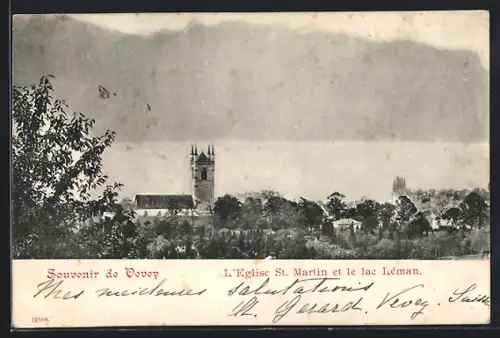 Souvenir de Vevey
L'Eglise St. Martin et le lac Léman.
Mes meilleures salutations
St. Gerard. Vevey. Suisse
12590.